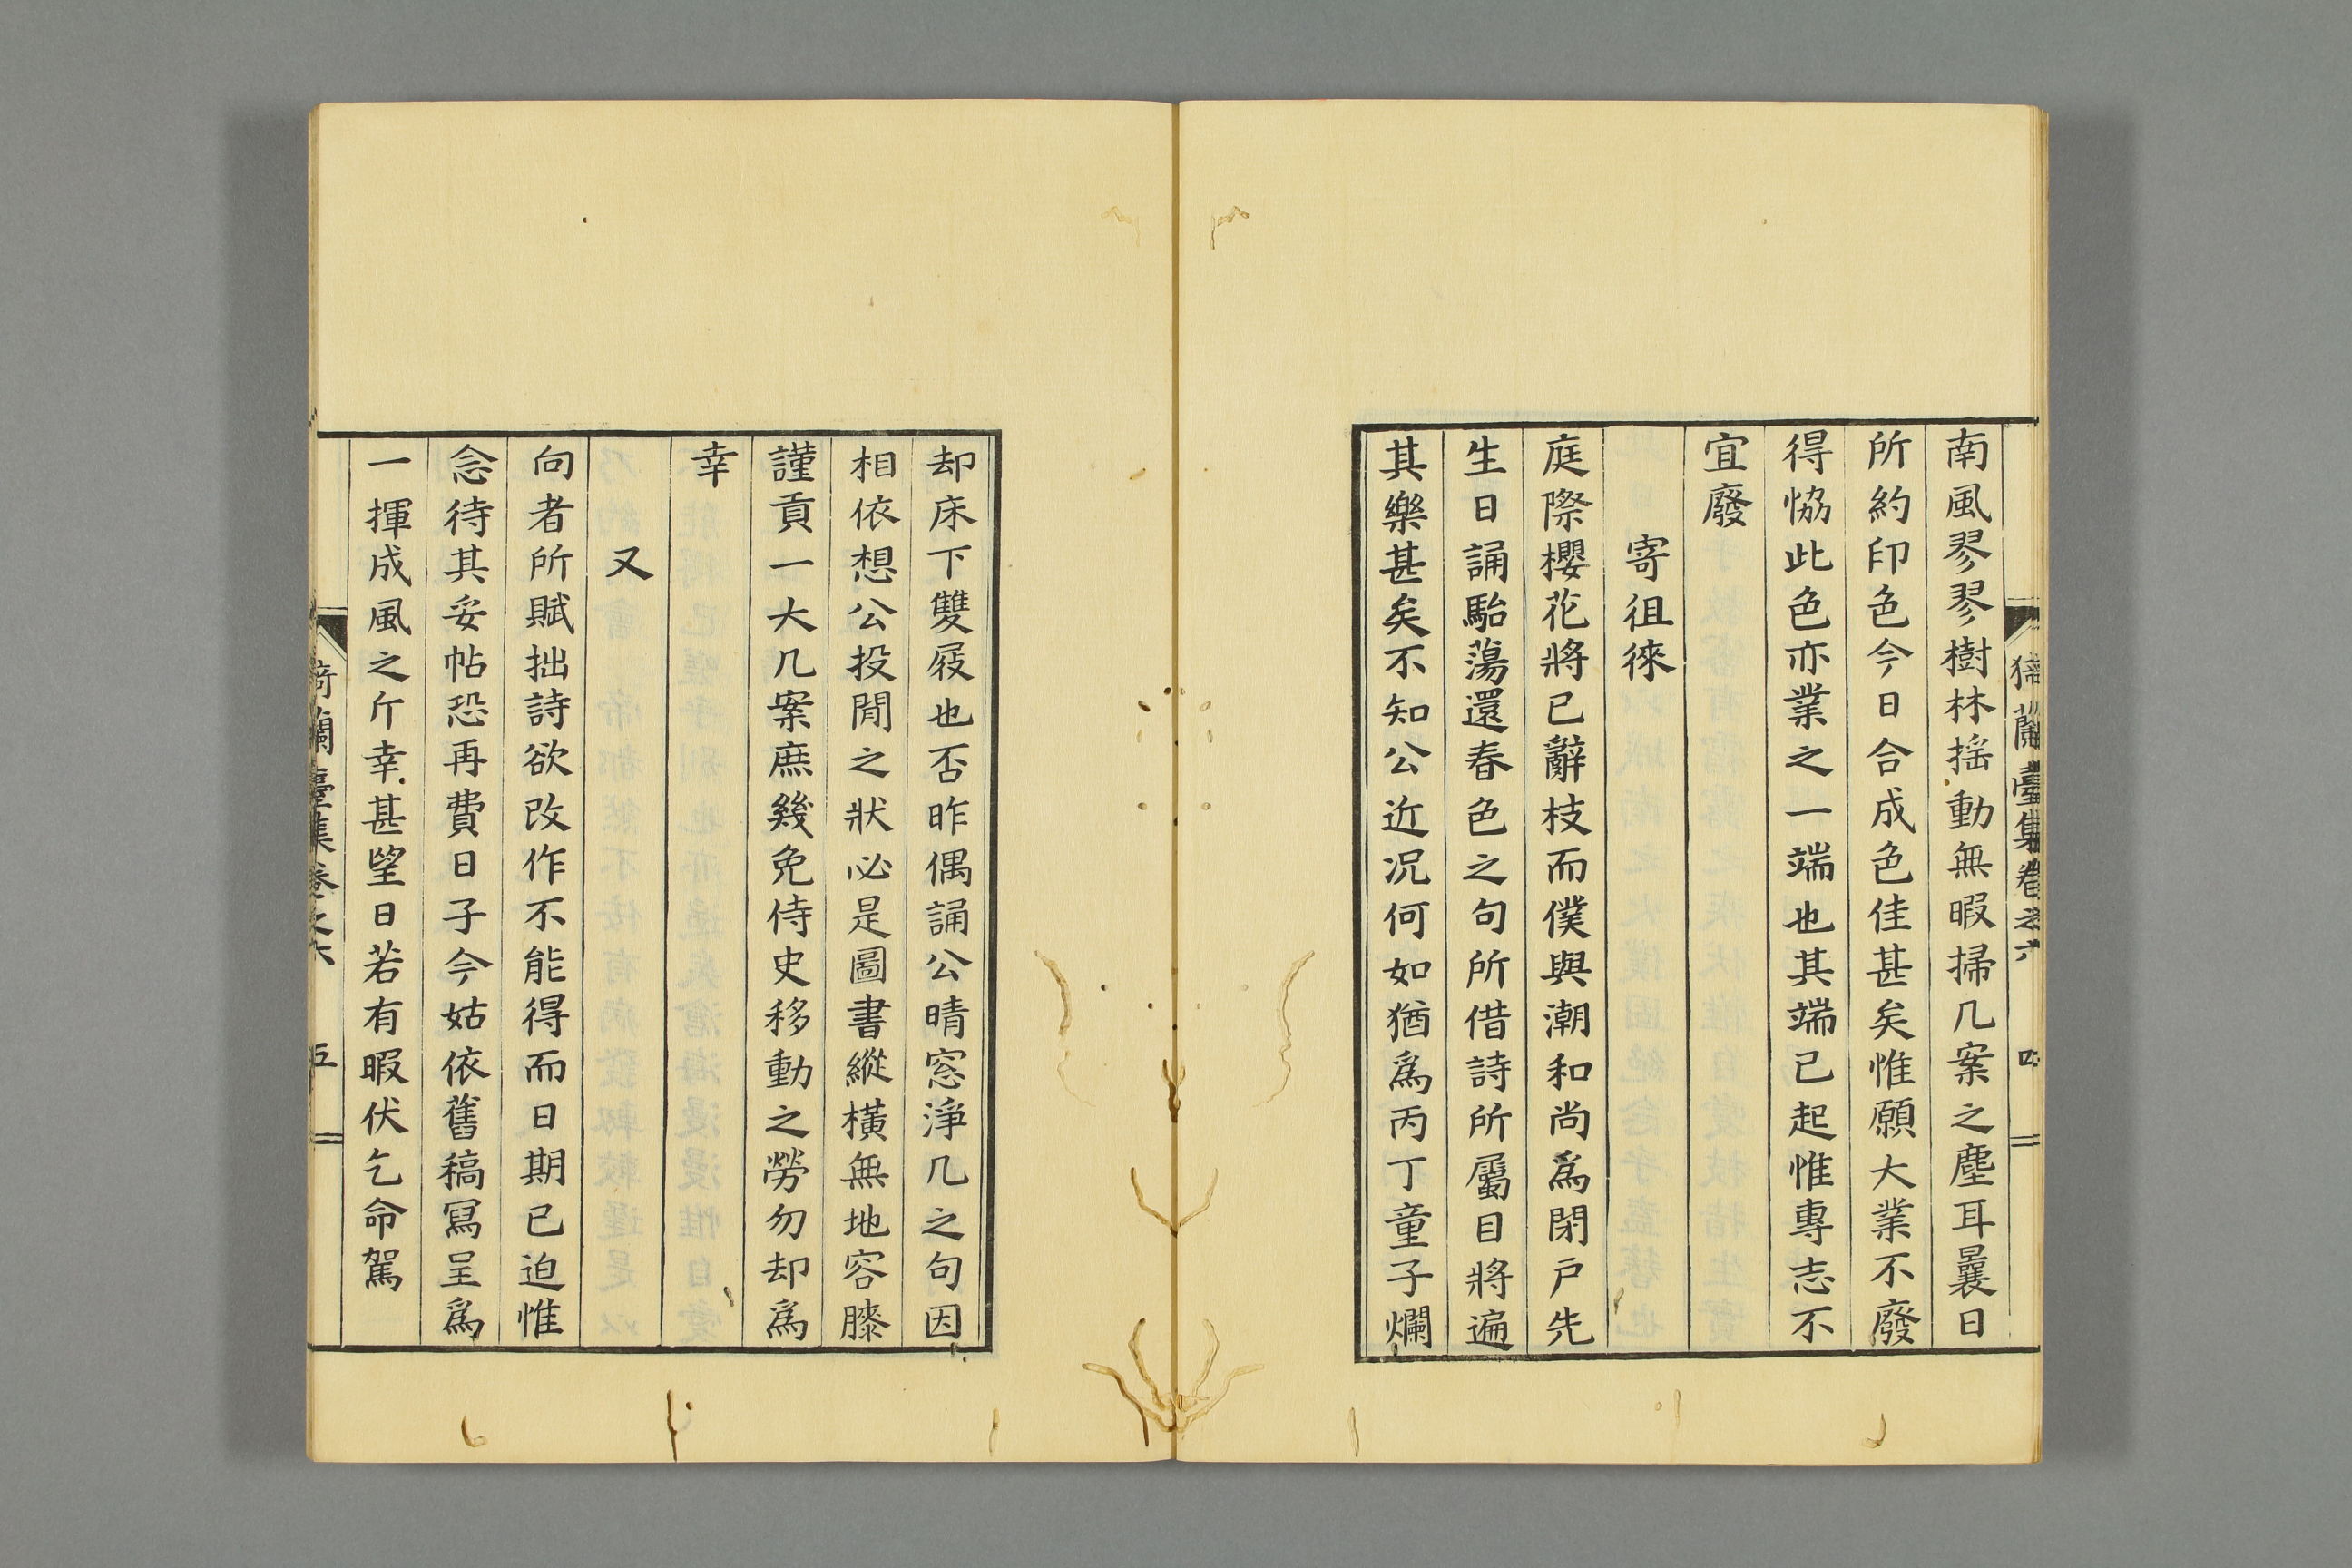 南風翏翏樹林揺動無暇掃几案之塵耳曩日
所約印色今日合成色佳甚矣惟願大業不廢
得恊此色亦業之一端也其端已起惟專志不
宜廢
寄徂徠
庭際櫻花將已辭枝而僕與潮和尚爲閉戸先
生日誦駘蕩還春色之句所借詩所屬目將遍
其樂甚矣不知公近况何如猶爲丙丁童子爛
却床下雙屐也否昨偶誦公晴窓淨几之句因
相依想公投閒之狀必是圖書縱橫無地容膝
謹貢一大几案庶幾免侍史移動之勞勿却爲
幸
又
向者所賦拙詩欲改作不能得而日期已迫惟
念待其妥帖恐再費日子今姑依舊稿冩呈爲
一揮成風之斤幸甚望日若有暇伏乞命駕
猗蘭臺集卷之六 四
猗蘭臺集卷之六 五